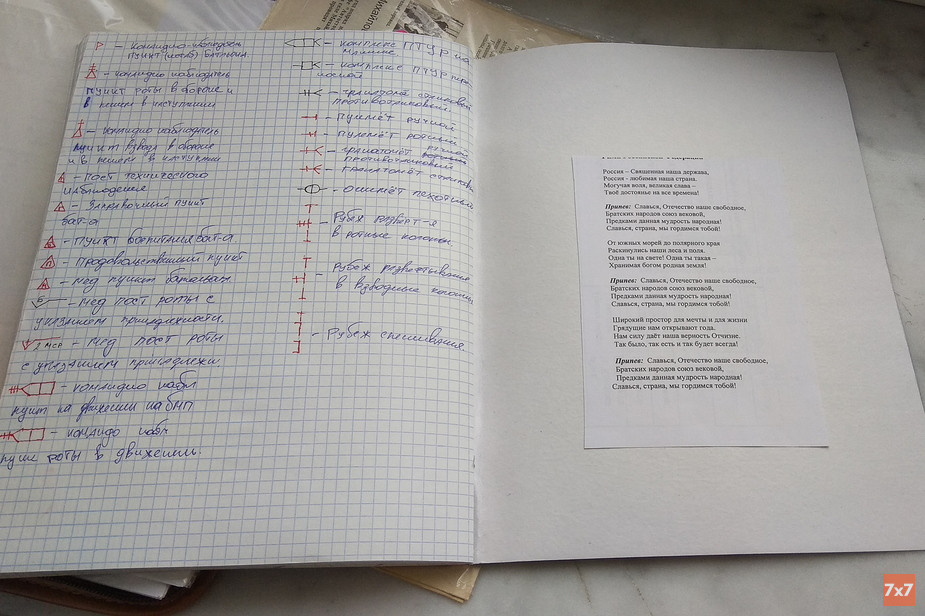 Командно-наблюдат
пункт (место) батальон.
командно наблюдатель
пункт роты в обороне и
в пешем в наступлении
командно наблюдатель
пункт взвода в обороне
и в пешем в наступлении
Пост технического
наблюдения
Заправочный пункт
бат-а
ПУНКТ боепитания бат-а
Продовольственный пункт
мед пункт батальона
Мед пост роты с
указанием принадлежности.
2 мср - Мед пост роты
с указанием принадлежн.
командно набл
пункт на движении на БМП
командо набл
пункт роты в движении.
комплекс ПТУР на
машине
комплекс ПТУР пере
носной
гранатомёт станковый
противотанковый
Пулемёт ручной
Пулемёт ротный
гранатомёт ручной
противотанковый
гранатомёт станковы
Огнемёт пехотный
Рубеж разверт-я
в ротные колонны
Рубеж развёртывания
в взводные колонны
Рубеж спешивания.
Россия – Священная наша держава,
Россия - любимая наша страна.
Могучая воля, великая слава –
Твоё достоянье на все времена!
Припев: Славься, Отечество наше свободное,
Братских народов союз вековой,
Предками данная мудрость народная!
Славься, страна, мы гордимся тобой!
От южных морей до полярного края
Раскинулись наши леса и поля.
Одна ты на свете! Одна ты такая –
Хранимая богом родная земля!
Припев: Славься, Отечество наше свободное,
Братских народов союз вековой,
Предками данная мудрость народная!
Славься, страна, мы гордимся тобой!
Широкий простор для мечты и для жизни
Грядущие нам открывают года.
Нам силу даёт наша верность Отчизне.
Так было, так есть и так будет всегда!
Припев: Славься, Отечество наше свободное,
Братских народов союз вековой,
Предками данная мудрость народная!
Славься, страна, мы гордимся тобой!
7x7